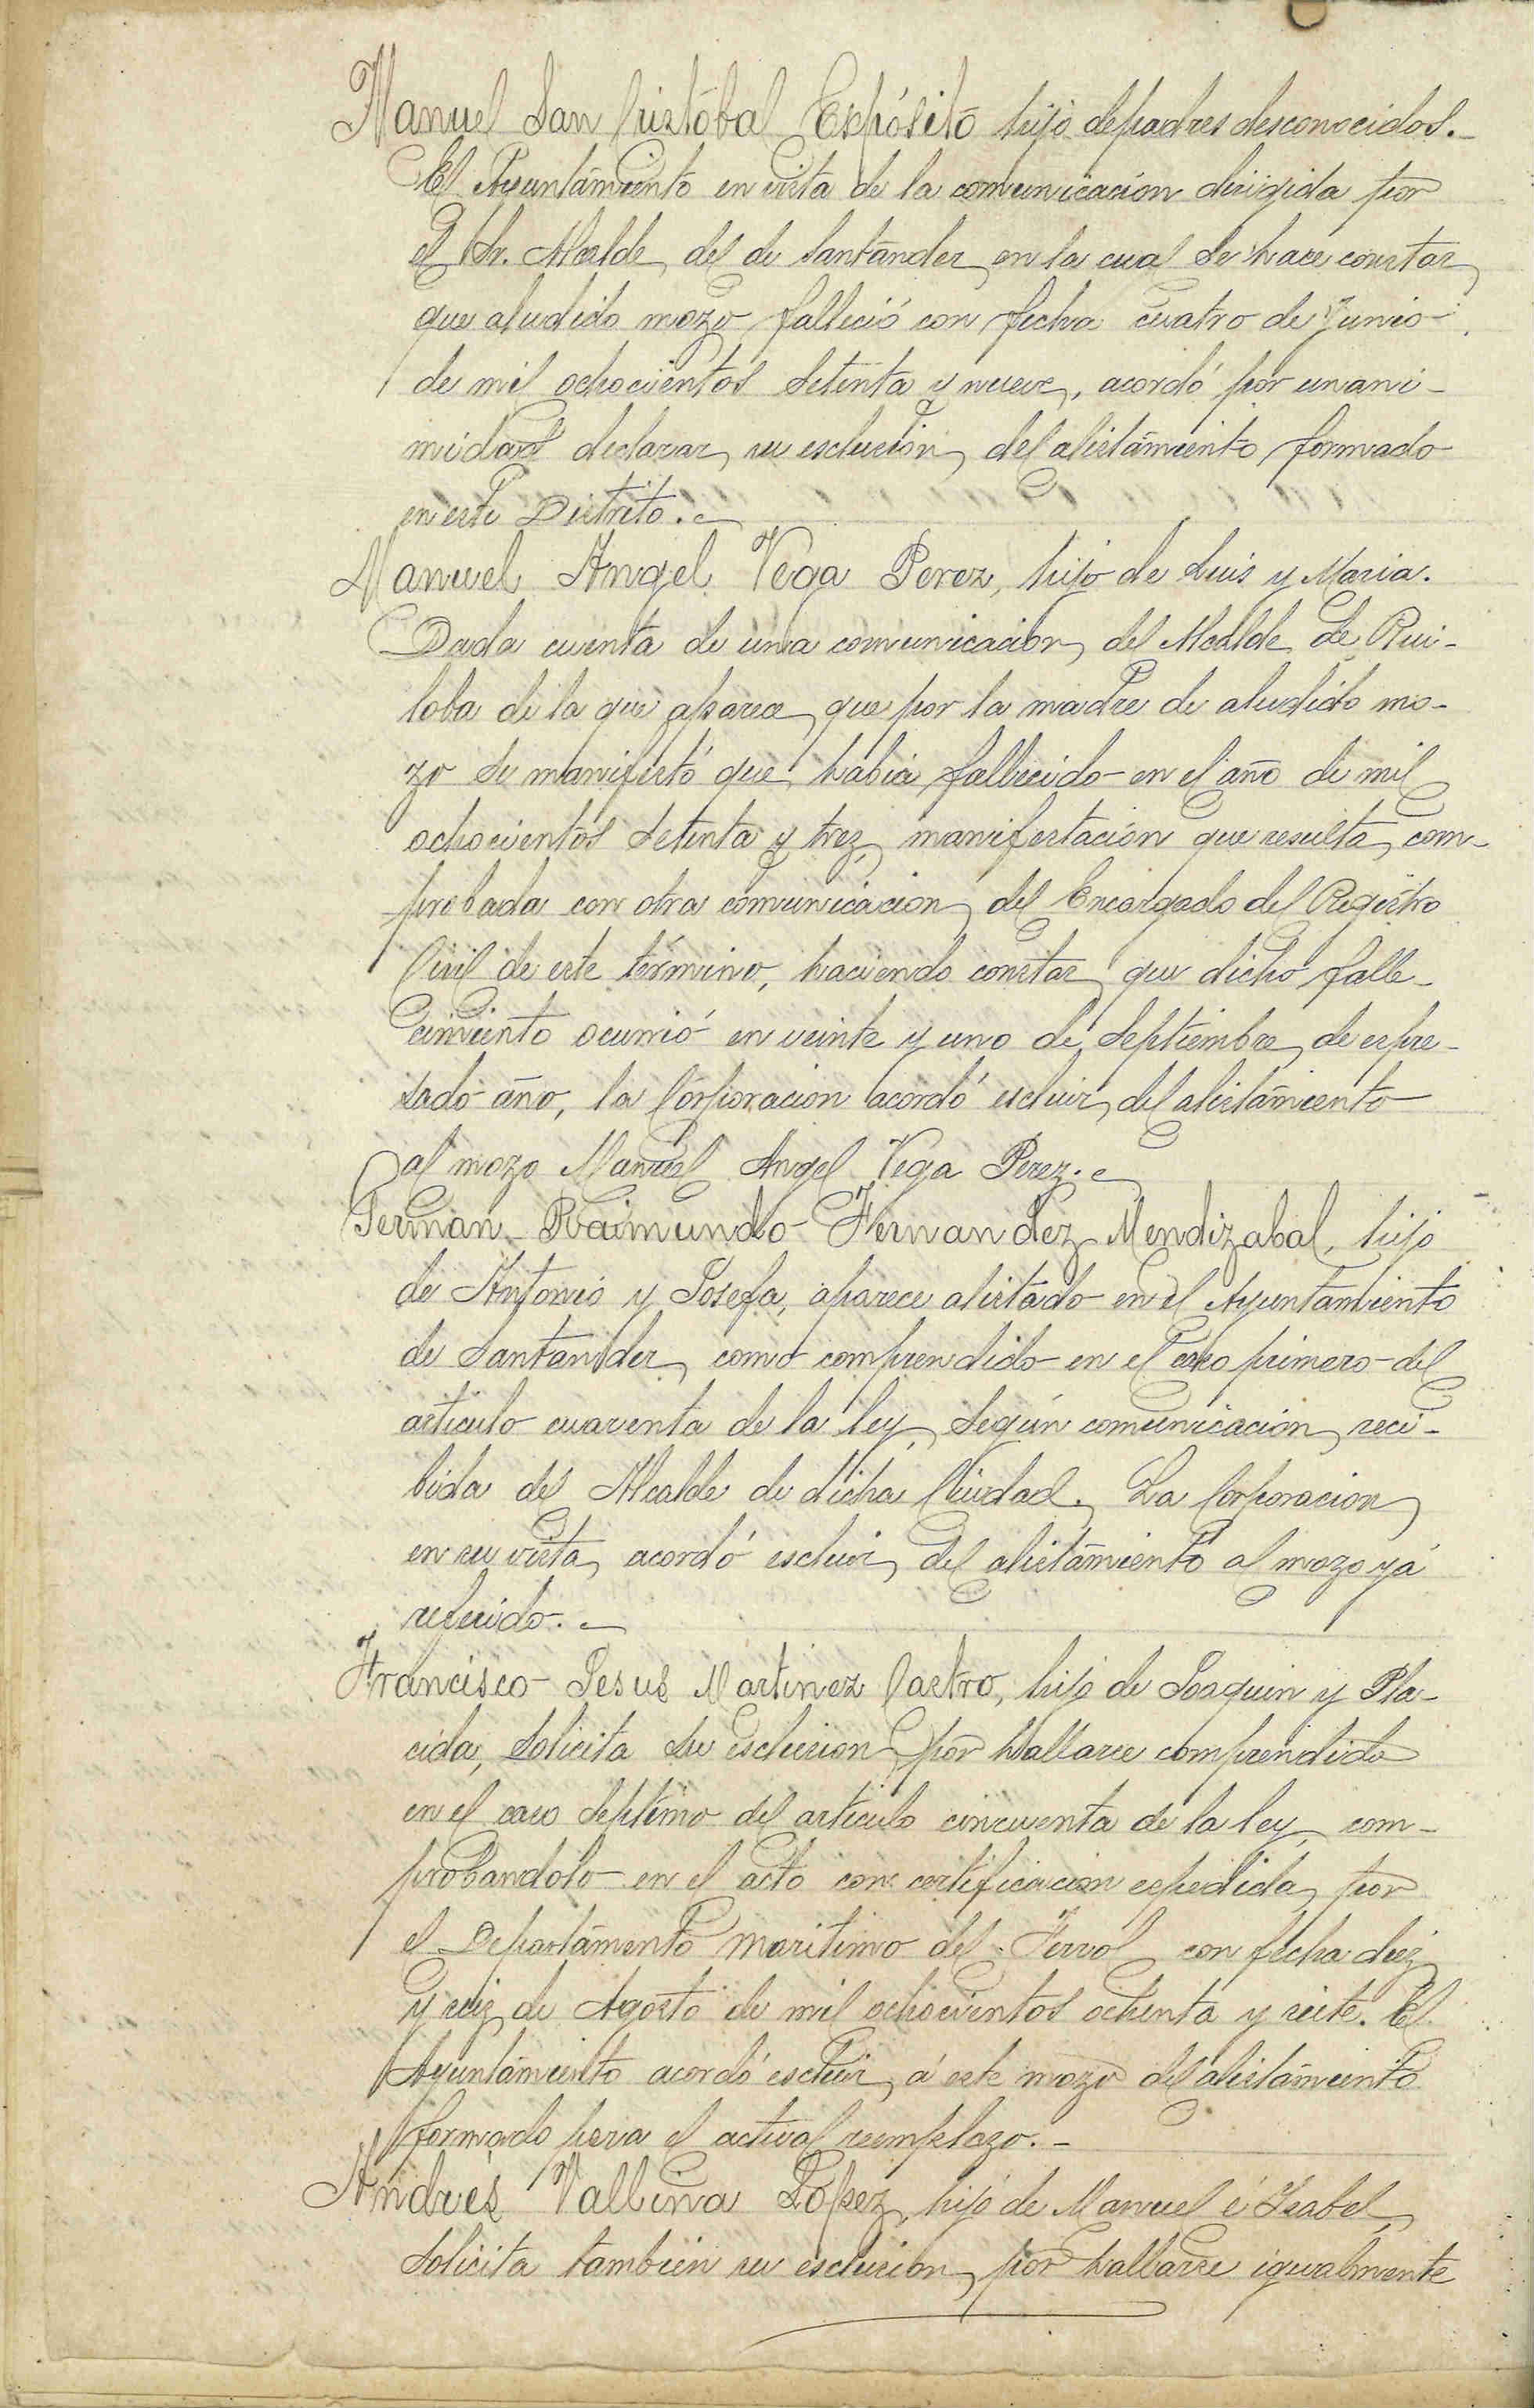 Manuel San Cristóbal Expósito hijo de padres desconocidos.
El Ayuntamiento en vista de la comunicacion dirigida por
el Sr. Alcalde del de Santander en la cual se hace constar
que aludido mozo falleció con fecha cuatro de Junio
de mil ochocientos setenta y nueve, acordó por unani-
midad declarar su esclusion del alistamiento formado
en este Distrito.
Manuel Angel Vega Perez, hijo de Luis y Maria.
Dada cuenta de una comunicacion del Alcalde de Rui-
loba de la que aparece que por la madre de aludido mo-
zo se manifestó que habia fallecido en el año de mil
ochocientos setenta y trez, manifestacion que resulta com-
probada con otra comunicacion del Encargado del Registro
Civil de este término, haciendo constar que dicho falle-
cimiento ocurrió en veinte y uno de Septiembre de espre-
sado año, la Corporacion acordó escluir del alistamiento
al mozo Manuel Angel Vega Perez.
German Raimundo Fernandez Mendizabal, hijo
de Antonio y Josefa, aparece alistado en el Ayuntamiento
de Santander, como comprendido en el caso primero del
articulo cuarenta de la ley, según comunicacion reci-
bida del Alcalde de dicha Ciudad. La Corporacion
en su vista, acordó escluir del alistamiento al mozo yá
referido.
Francisco Jesus Martinez Castro, hijo de Joaquin y Pla-
cida, solicita su esclusion por hallarse comprendido
en el caso septimo del articulo cincuenta de la ley, com-
probandolo en el acto con certificacion espedida por
el Departamento maritimo del Ferrol con fecha diez
y seiz de Agosto de mil ochocientos ochenta y siete. El
Ayuntamiento acordó escluir á este mozo del alistamiento
formado para el actual reemplazo.
Andrés Vallina López, hijo de Manuel é Isabel,
solicita tambien su esclusion por hallarse igualmente